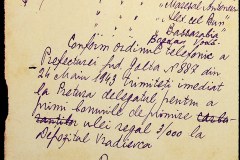 " "Mareșal Antonescu
" "Alex. cel Bun"
" "Basarabia"
Conform ordinului telefonic a
Prefecturei jud. Golta N 887 din
24 Maiu 1943 trimiteți imediat
la Pretura delegatul pentru a
primi bonurile de primire
ulei regal 3/000 la
Depozitul Vradievca